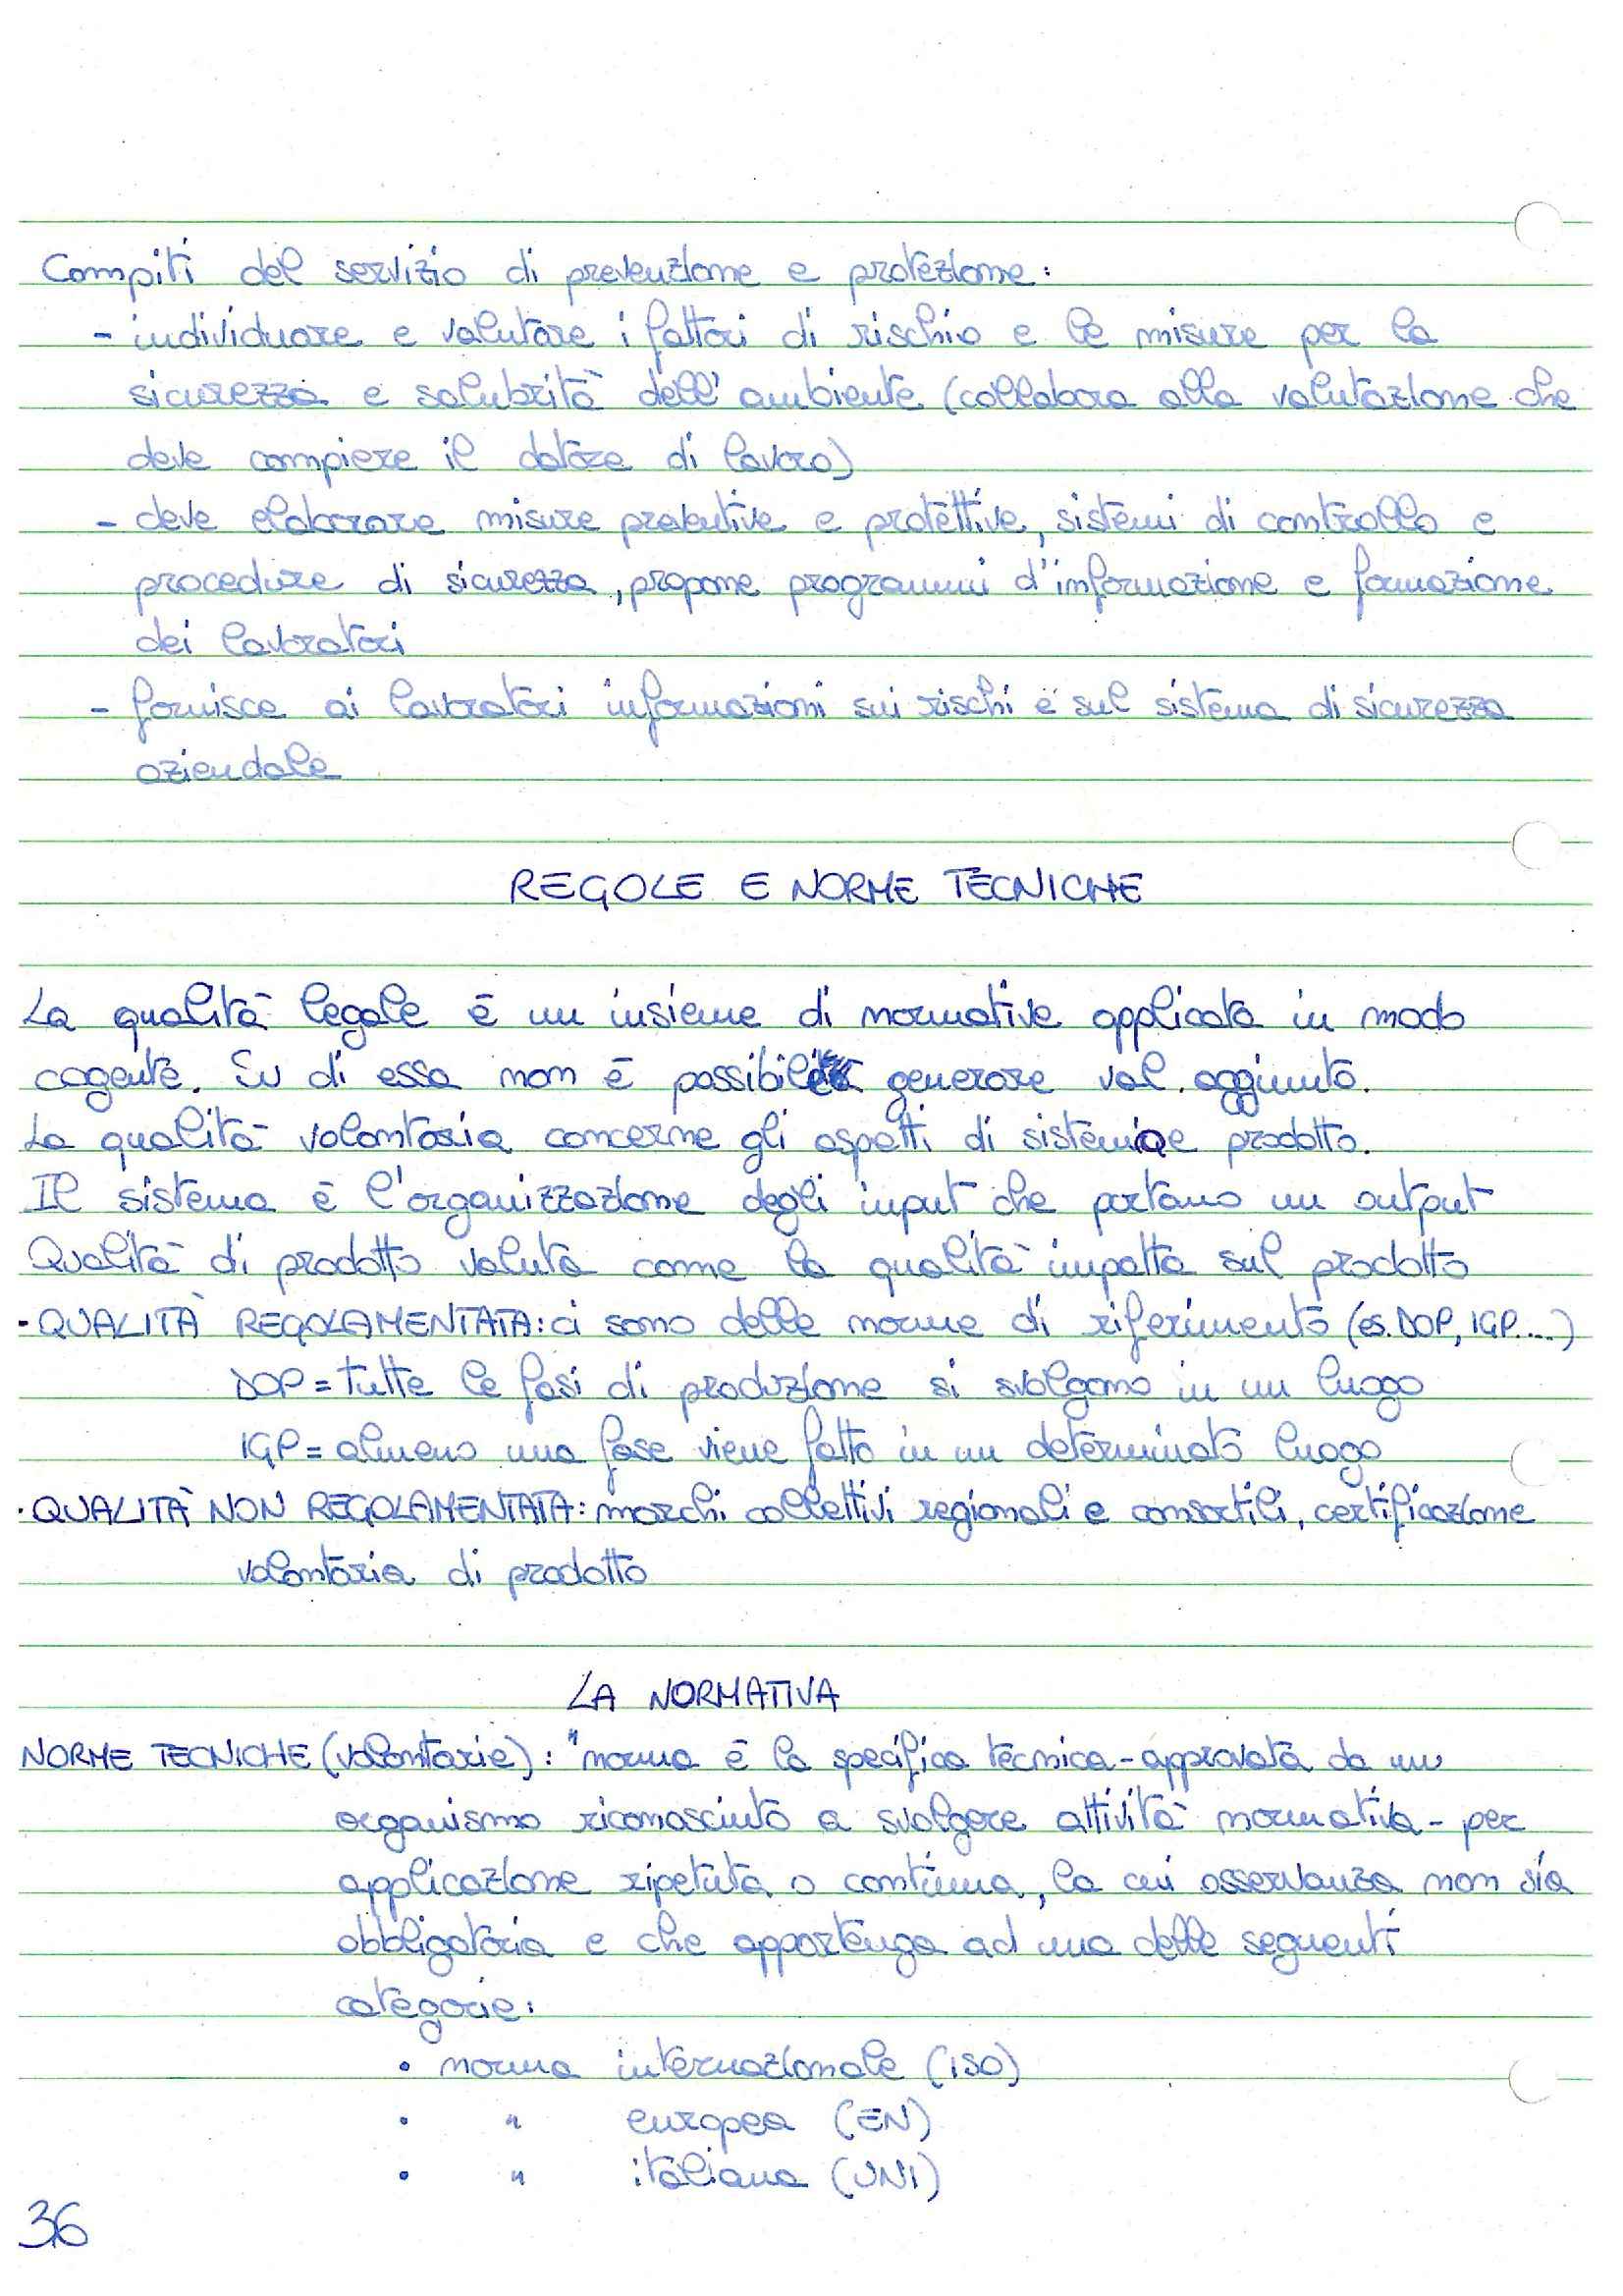 Compiti del servizio di prevenzione e protezione:
- individuare e valutare i fattori di rischio e le misure per la
sicurezza e salubrità dell'ambiente (collabora alla valutazione che
deve compiere il datore di lavoro)
- deve elaborare misure preventive e protettive, sistemi di controllo e
procedure di sicurezza, propone programmi d'informazione e formazione
dei lavoratori
- fornisce ai lavoratori informazioni sui rischi e sul sistema di sicurezza
aziendale
REGOLE E NORME TECNICHE
La qualità legale è un insieme di normative applicata in modo
cogente. Su di essa non è possibile generare val. aggiunto.
La qualità volontaria concerne gli aspetti di sistema e prodotto.
Il sistema è l'organizzazione degli input che portano un output
Qualità di prodotto valuta come la qualità impatta sul prodotto
- QUALITÀ REGOLAMENTATA: ci sono delle norme di riferimento (es. DOP, IGP....)
DOP = tutte le fasi di produzione si svolgono in un luogo
IGP = almeno una fase viene fatto in un determinato luogo
· QUALITÀ NON REGOLAMENTATA: marchi collettivi regionali e consortili, certificazione
volontaria di prodotto
LA NORMATIVA
NORME TECNICHE (volontarie): "norma è la specifica tecnica - approvata da un
organismo riconosciuto a svolgere attività normativa - per
applicazione ripetuta o continua, la cui osservanza non sia
obbligatoria e che appartenga ad una delle seguenti
categorie:
• norma internazionale (ISO)
• " europea (EN)
• " italiana (UNI)
36